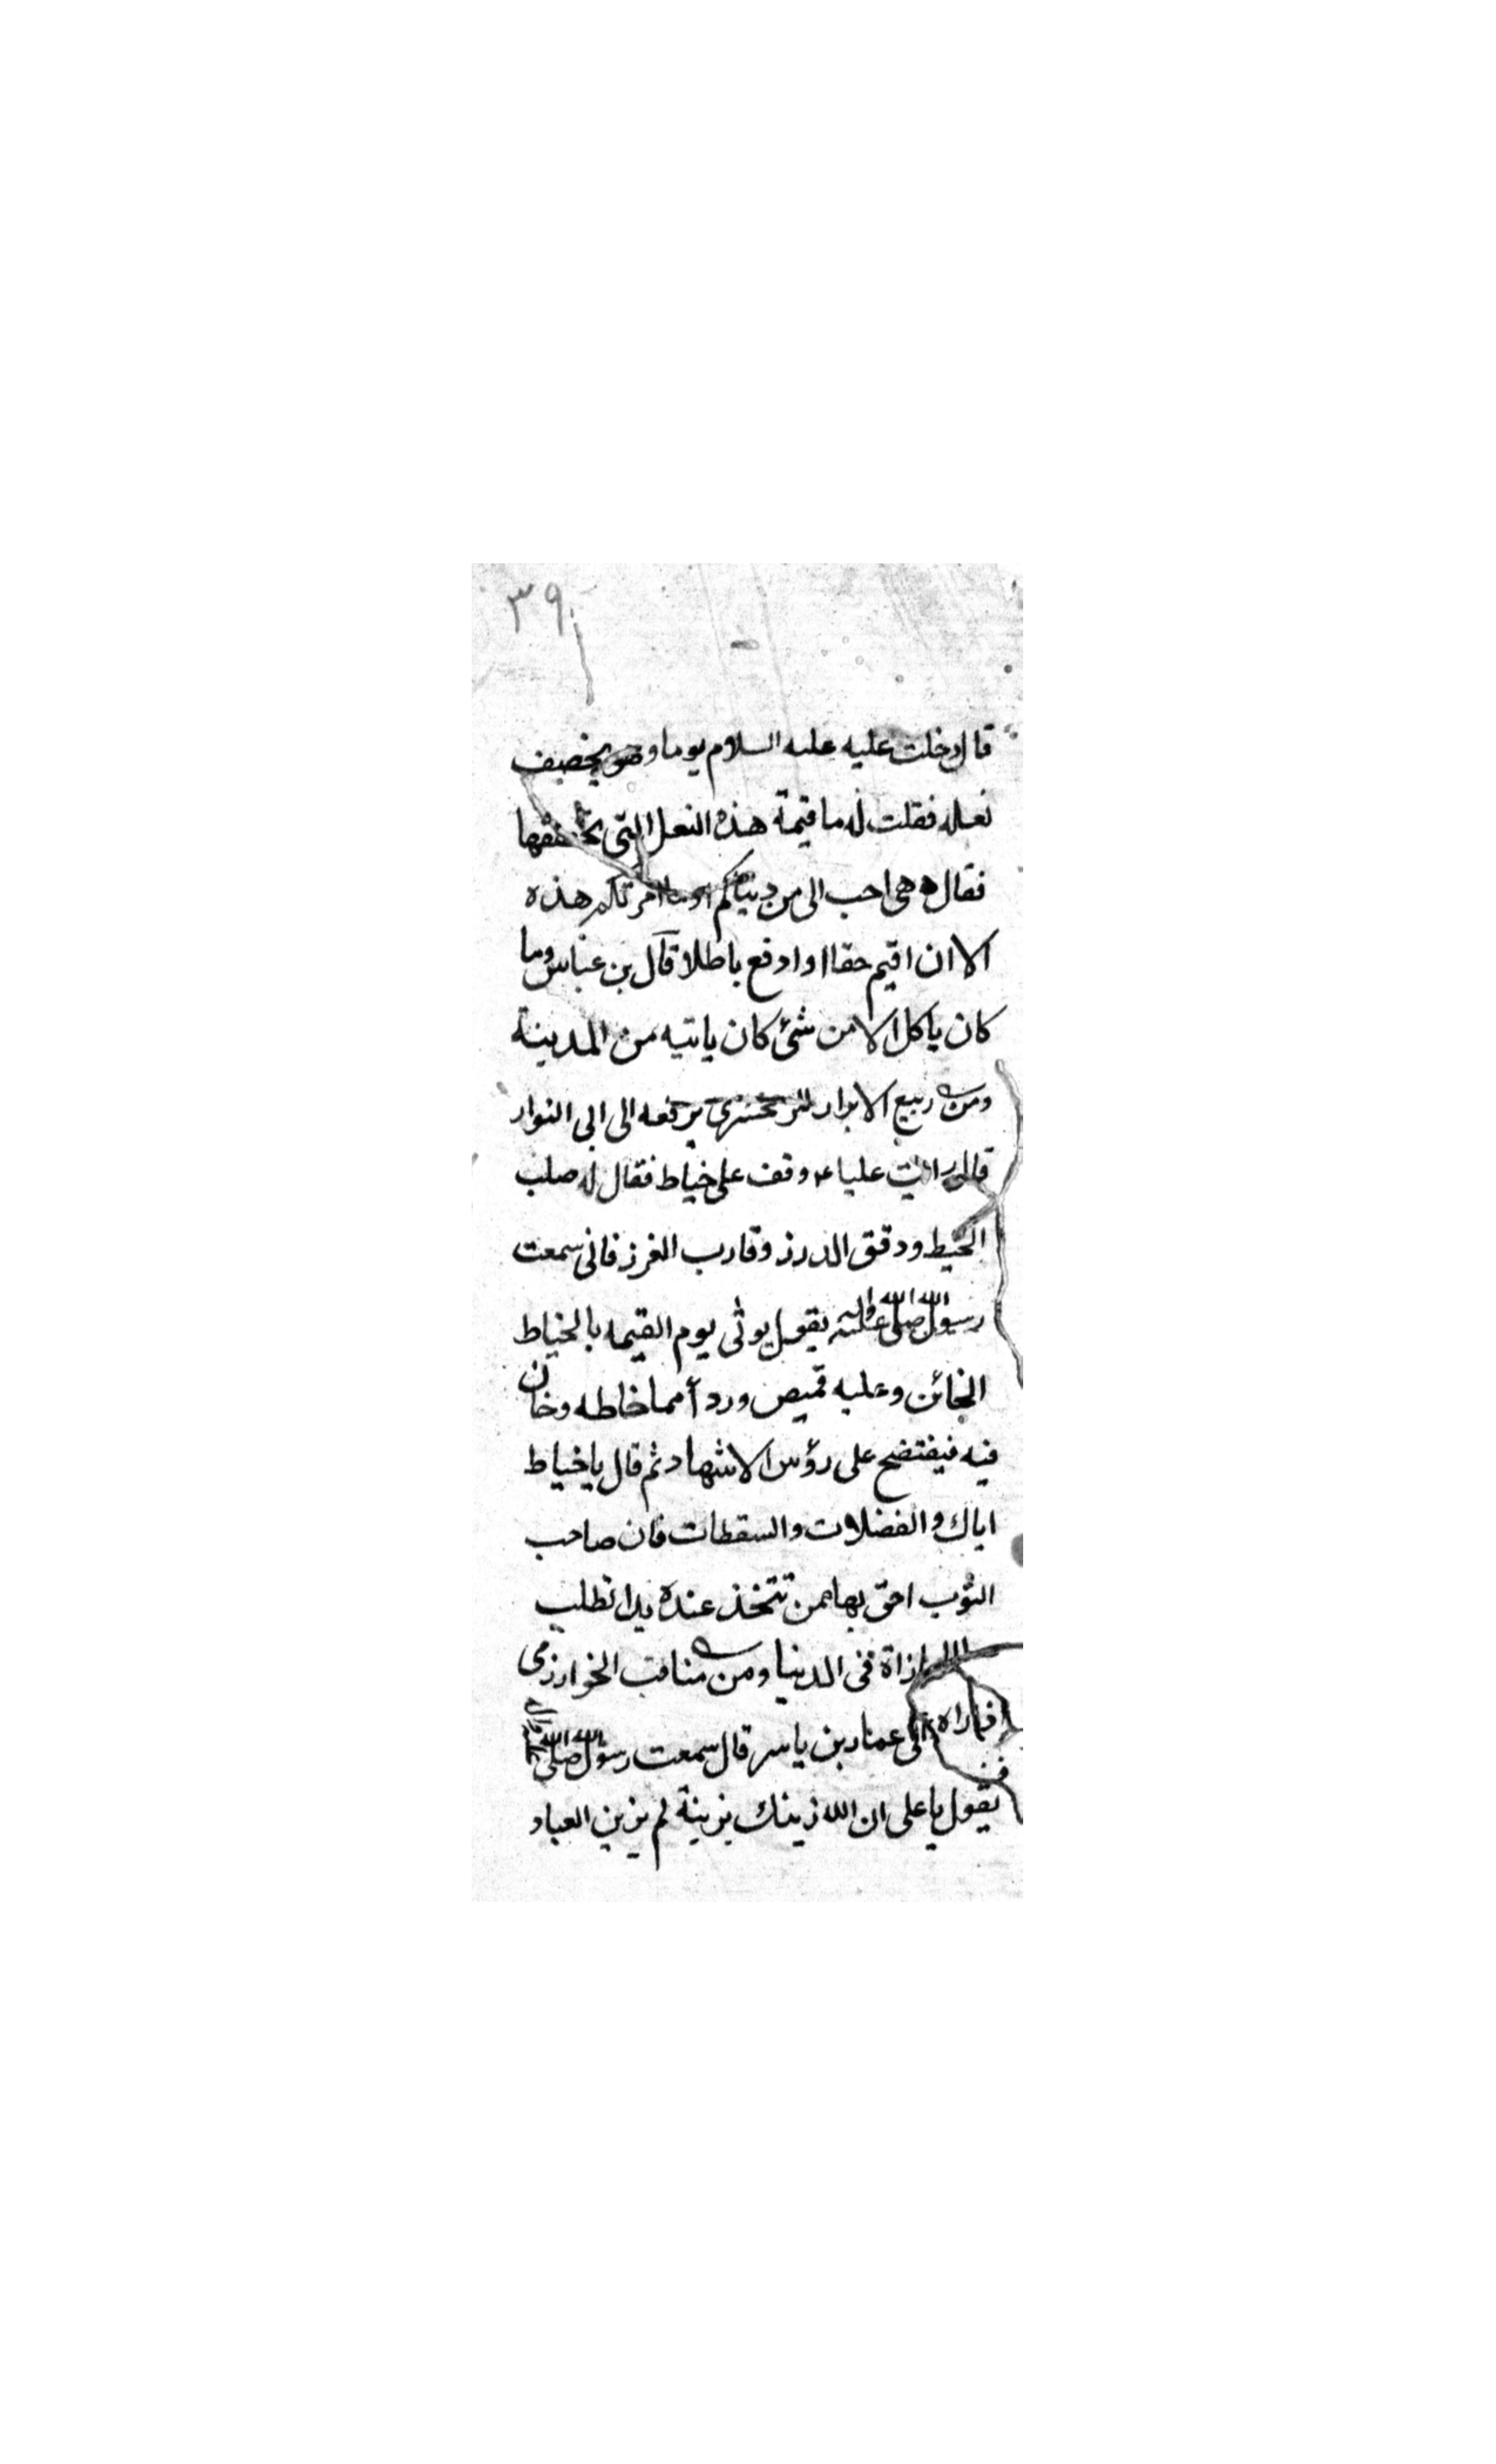 ٣٩
قال دخلت عليه عليه السلام يوما وهو يخصف
نعله فقلت له ما قيمة هذه النعل التى تخصفها
فقال هى احب الى من دنياكم هذه
الا ان اقيم حقا او ادفع باطلا قال بن عباس وما
كان ياكل الا من شئ كان ياتيه من المدينة
ومن ربيع الابرار للزمخشرى يرفعه الى ابى النوار
قال رايت عليا ع وقف على خياط فقال له صلب
الخيط ودقق الدرز وقارب الغرز فانى سمعت
رسول الله صلى الله عليه واله يقول يوتى يوم القيمه بالخياط
الخائن وعليه قميص وردأ مما خاطه وخان
فيه فيفتضح على رؤس الاشهاد ثم قال يا خياط
اياك والفضلات والسقطات فان صاحب
الثوب احق بها ممن تتخذ عنده يدا تطلب
فى الدنيا ومن مناقب الخوارزمى
الى عمار بن ياسر قال سمعت رسول الله صلى الله
يقول يا على ان الله زينك بزينة لم يزين العباد